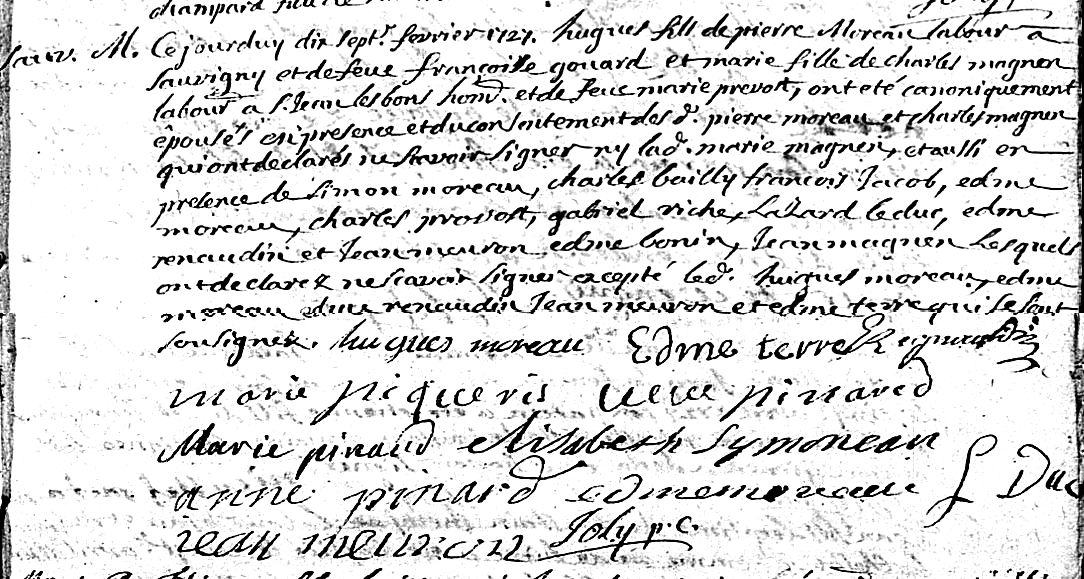 Sauv. M. Ce jourduy dix sept.e fevrier 1727. hugues fils de pierre Moreau labour.r a
sauvigny et de feue francoise gouard et marie fille de charles magnen
labour.r a S. Jean les bons hom.s et de feue marie prevost, ont eté canoniquement
épousés en presence et du consentement des d. pierre moreau et charles magnen
qui ont declarés ne scavoir signer ny lad. marie magnen, et aussi en
presence de simon moreau, charles bailly francois Jacob, edme
moreau, charles provost, gabriel riche, Lazard leduc, edme
renaudin et Jean meuron edme bonin, Jean magnen Lesquels
ont declarez ne scavoir signer excepté led. hugues moreau, edme
moreau edme renaudin Jean meuron et edme terre qui se sont
sousignez. hugues moreau Edme terre
marie piqueris veue pinard
Marie pinard elisabeth Symoneau
anne pinard edme moreau L Duc
iean meuron Joly p.c.